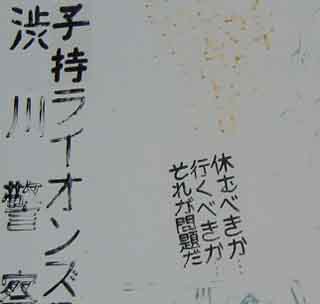 子持ライオンズ
渋川警察
休むべきか…
行くべきか…
それが問題だ